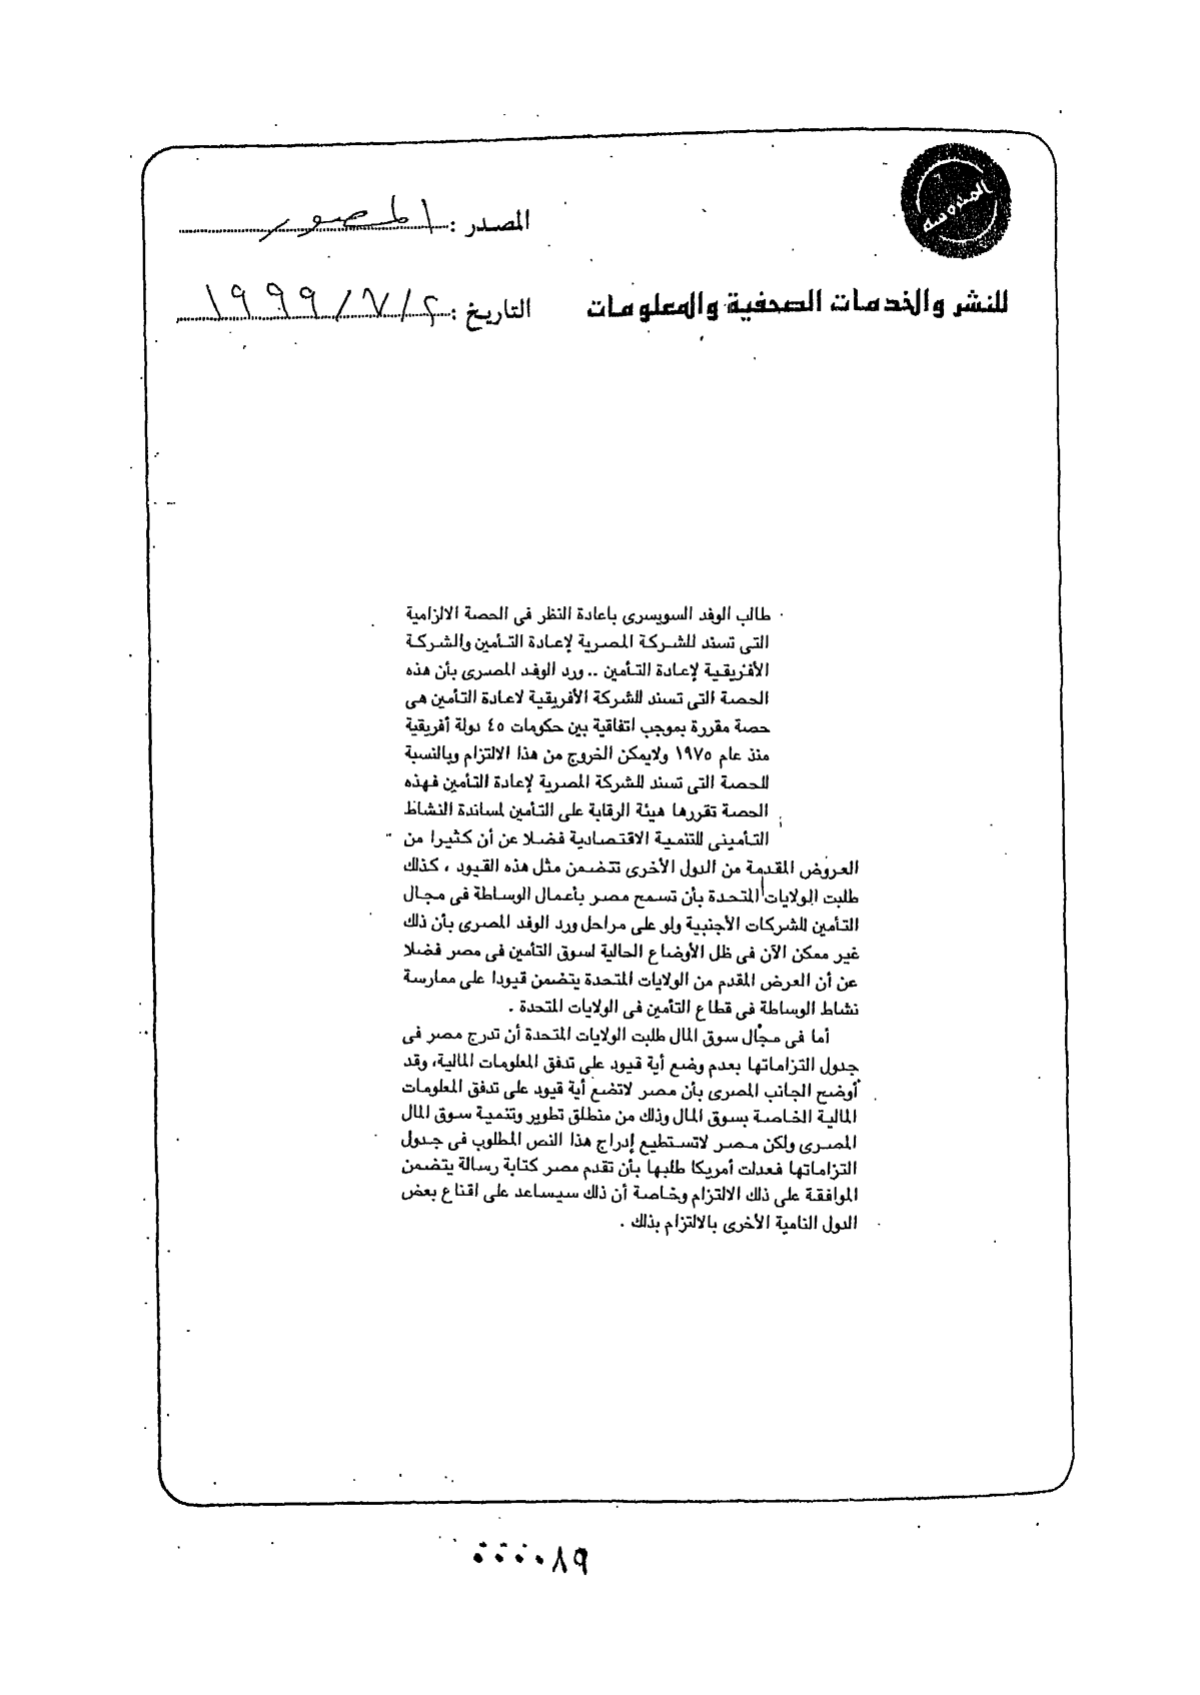 المصدر : المصور
للنشر والخدمات الصحفية والمعلومات
التاريخ : ٢ / ٧ / ١٩٩٩
طالب الوفد السويسرى باعادة النظر فى الحصة الالزامية
التى تسند للشركة المصرية لإعادة التأمين والشركة
الأفريقية لإعادة التأمين .. ورد الوفد المصرى بأن هذه
الحصة التى تسند للشركة الأفريقية لاعادة التأمين هى
حصة مقررة بموجب اتفاقية بين حكومات ٤٥ دولة أفريقية
منذ عام ١٩٧٥ ولايمكن الخروج من هذا الالتزام وبالنسبة
للحصة التى تسند للشركة المصرية لإعادة التأمين فهذه
الحصة تقررها هيئة الرقابة على التأمين لمساندة النشاط
التأمينى للتنمية الاقتصادية فضلا عن أن كثيرا من
العروض المقدمة من الدول الأخرى تتضمن مثل هذه القيود ، كذلك
طلبت الولايات المتحدة بأن تسمح مصر بأعمال الوساطة فى مجال
التأمين للشركات الأجنبية ولو على مراحل ورد الوفد المصرى بأن ذلك
غير ممكن الآن فى ظل الأوضاع الحالية لسوق التأمين فى مصر فضلا
عن أن العرض المقدم من الولايات المتحدة يتضمن قيودا على ممارسة
نشاط الوساطة فى قطاع التأمين فى الولايات المتحدة .
أما فى مجال سوق المال طلبت الولايات المتحدة أن تدرج مصر فى
جدول التزاماتها بعدم وضع أية قيود على تدفق المعلومات المالية، وقد
أوضح الجانب المصرى بأن مصر لاتضع أية قيود على تدفق المعلومات
المالية الخاصة بسوق المال وذلك من منطلق تطوير وتنمية سوق المال
المصرى ولكن مصر لاتستطيع إدراج هذا النص المطلوب فى جدول
التزاماتها فعدلت أمريكا طلبها بأن تقدم مصر كتابة رسالة يتضمن
الموافقة على ذلك الالتزام وخاصة أن ذلك سيساعد على اقناع بعض
الدول النامية الأخرى بالالتزام بذلك .
٠٠٠٠٨٩